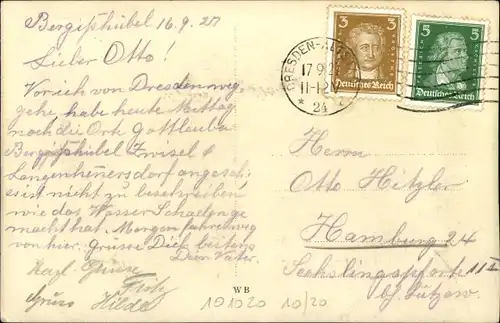 Berggießhübel 16.9.27
Lieber Otto!
Vorich von Dresden weg
gehe habe heute Mittag
noch die Ort Gottleuba
Berggißhübel Zwisel
Langenhenersdorf angesch.
es ist nicht zu beschreiben
wie das Wasser Schaeden ge
macht hat. Morgen fahre ich weg
von hier. Grüsse Dich bestens
Dein Vater.
Herzl. Grüsse
Gruss Hilde
3 3
Deutsches Reich
5 5
Deutsches Reich
DRESDEN-ALT
17.9.2
11-12
* 24
Herrn
Otto Hitzler
Hamburg 24
Sechslingspforte 11 II
b/ Lützow.
WB
101020 10/20